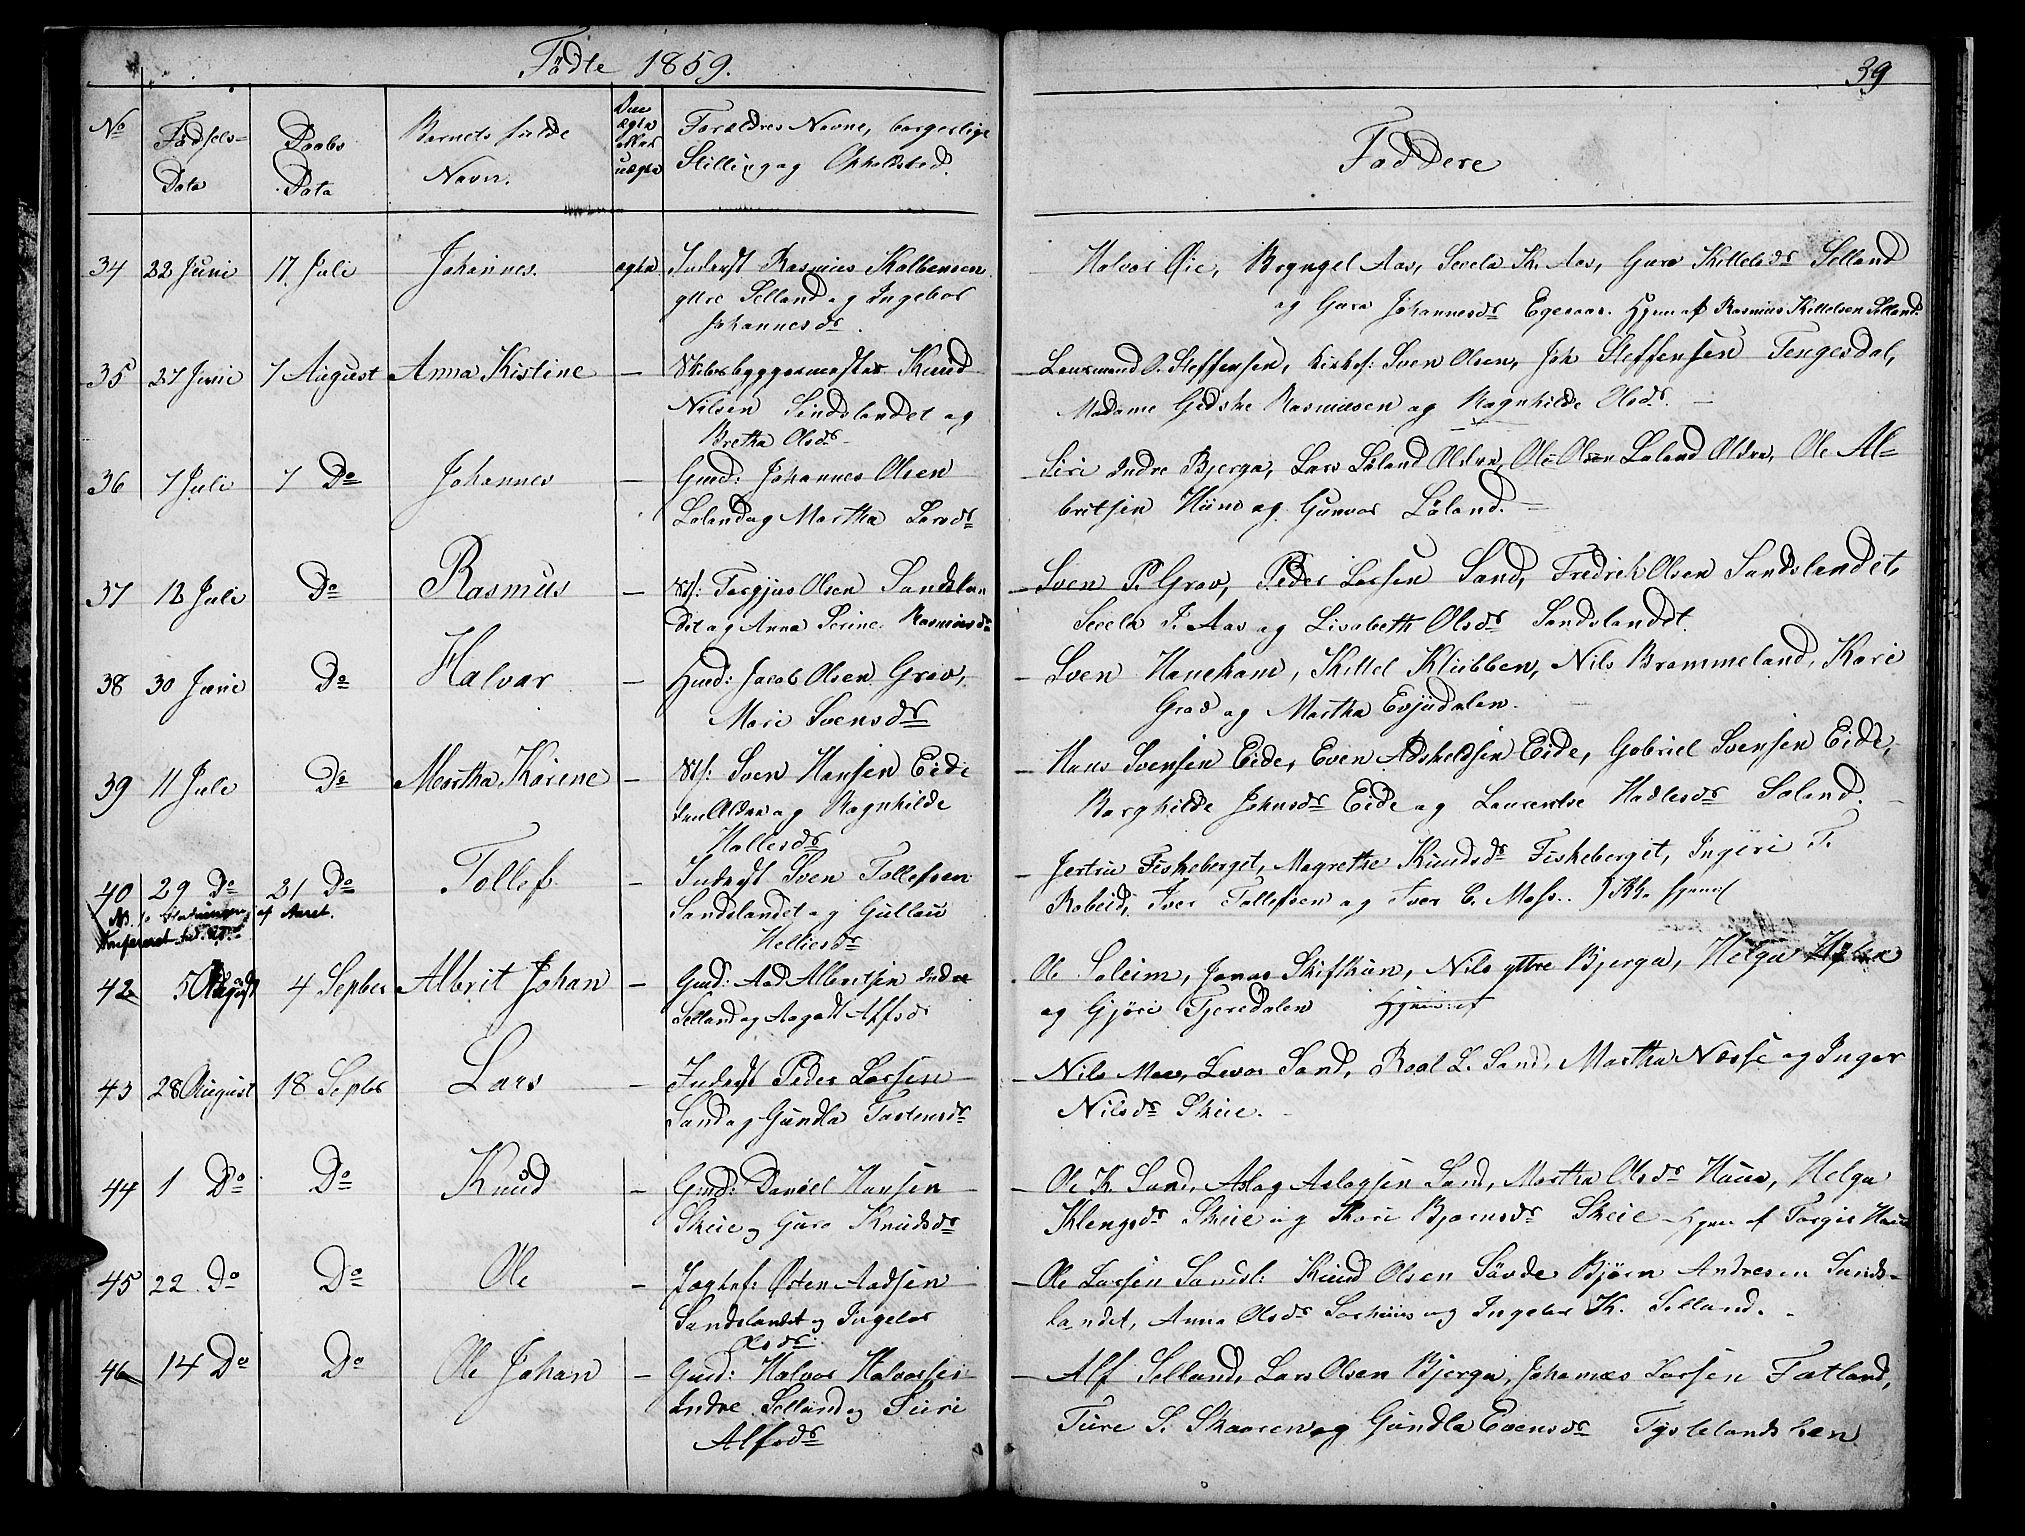 Fødte 1859.
39
No
Fødsels-
Data
Daabs
Data
Barnets fulde
Navn.
Om
ægte
eller
uægte
Forældres Navne, borgerlige
Stilling og Opholdsted.
Faddere
34 22 Juni 17. Juli Johannes. ægte Inderst Rasmus Kolbensen
yttre Selland og Ingebor
Johannesdr.
Halvor Øie, Bryngel Aas, Secela K. Aas, Guro Killelsdr Selland
og Guro Johannesdr Egeraas. Hjem af Rasmus Kittelsen Selland.
35 27 Juni 7 August Anna Kistine — Skibsbyggermester Knud
Nilsen Sandslandet og
Bretha Olsdr
— Lensmand O. Steffensen, Kirkes: Sven Olsen, Joh Steffensen Tengesdal,
Madame Gidske Rasmusen og Ragnhilde Olsdr. —
36 7 Juli 7 Do Johannes — Gmd: Johannes Olsen
Løland og Martha Larsdr
— Siri Indre Bjerga, Lars Løland Oldre, Ole Olsen Løland Oldre, Ole Al-
britsen Hiim og Gunvor Løland. —
37 12 Juli Do Rasmus — Stf: Torgjus Olsen Sandslan
det og Anna Serine Rasmusdr
— Sven P. Grov, Peder Larsen Sand, Fredrik Olsen Sandslandet,
Secela P. Aas og Lisabeth Olsdr Sandslandet.
38 30 Juni Do Halvor — Hmd: Jacob Olsen Grov,
Mari Svensdr
— Sven Hanekam, Kittel Klubben, Nils Brommeland, Kari
Grov og Martha Evjudalen.
39 11 Juli Do Martha Karine — Stf: Sven Hansen Eide
den Oldre og Ragnhilde
Hallesdr
— Hans Svensen Eide, Even Adskeldsen Eide, Gabriel Svensen Eide,
Borghilde Johnsdr Eide og Laurentse Hadlesdr Søland. —
40 29 Do 21 Do Tollef — Inderst Sven Tollefsen
Sandslandet og Gullau
Helliesdr
— Jertru Fiskeberget, Magrethe Knudsdr Fiskeberget, Ingeri T.
Robeid, Iver Tollefsen og Iver E. Moss.
af Aaret.
42 5 August 4 Sepber Albrit Johan — Gmd: Aad Albretsen Indre
Selland og Aagaat Alfsdr
Ole Soleim, Jonas Skiftun, Nils yttre Bjerga, Helga
og Gjøri Tjeredalen
43 28 August 18 Septbr Lars — Inderst Peder Larsen
Sand og Gundla Tostensdr
— Nils Moe, Levor Sand, Roal L. Sand, Martha Nøsse og Inger
Nilsdr Skeie.
44 1 Do Do Knud — Gmd: Daniel Hansen
Skeie og Guro Knudsdr
— Ole K. Sand, Aslag Aslagsen Sand, Martha Olsdr Haua, Helga
Klengsdr Skeie og Kari Bjornsdr Skeie — Hjem af Torgir Haua
45 22 Do Do Ole — Jægtef: Østen Aadsen
Sandslandet og Ingebor
Olsdr.
— Ole Larsen Sandsl: Knud Olsen Søvde Bjørn Andresen Sands-
landet, Anna Olsdr Sørhuus og Ingebor K. Selland. —
46 14 Do Do Ole Johan — Gmd: Halvor Halvorsen
Indre Selland og Siri
Alfsdr
— Alf Selland, Lars Olsen Bjerga, Johannes Larsen Fatland,
Ture S. Skaaren og Gundla Evensdr Tystelandslien